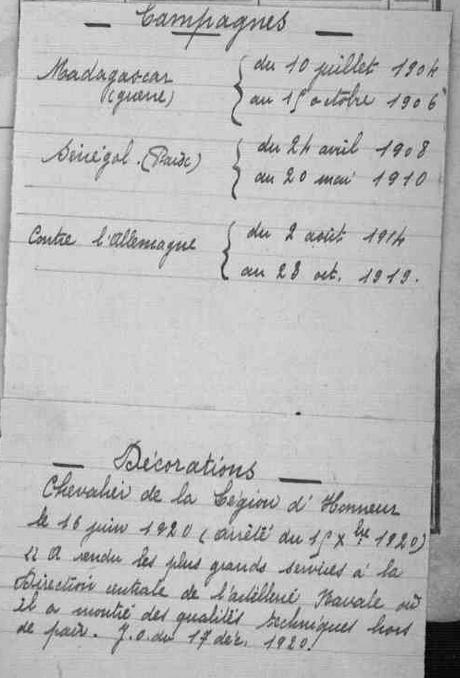 — Campagnes —
Madagascar { du 10 juillet 1904
(guerre) au 15 octobre 1906
Sénégal. (Paix) { du 24 avril 1908
au 20 mai 1910
Contre l'Allemagne { du 2 août 1914
au 23 oct. 1919.
— Décorations —
Chevalier de la Légion d'Honneur
le 16 juin 1920 (arrêté du 15 Xbre 1920)
a rendu les plus grands services à la
Direction centrale de l'artillerie Navale où
il a montré des qualités techniques hors
de pair. J.O. du 17 déc. 1920.